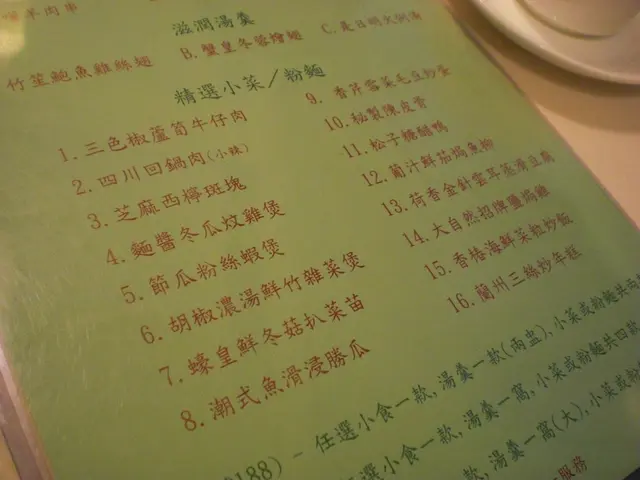 羊肉串
滋潤湯羹
竹笙鮑魚雞絲翅 B. 蟹皇冬蓉燴翅 C. 是日明火例湯
精選小菜／粉麵
1. 三色椒蘆筍牛仔肉
2. 四川回鍋肉(小辣)
3. 芝麻西檸斑塊
4. 麵醬冬瓜炆雞煲
5. 節瓜粉絲蝦煲
6. 胡椒濃湯鮮竹雜菜煲
7. 蠔皇鮮冬菇扒菜苗
8. 潮式魚滑浸勝瓜
9. 香芹雪菜毛豆炒蛋
10. 秘製陳皮骨
11. 松子糖醋鴨
12. 葡汁鮮茄焗魚柳
13. 荷香金針雲耳蒸滑豆腐
14. 大自然招牌鹽焗雞
15. 香椿海鮮菜粒炒飯
16. 蘭州三絲炒年糕
188) - 任選小食一款, 湯羹一款(兩盅), 小菜或粉麵共兩
選小食一款, 湯羹一窩, 小菜或粉麵共四
款, 湯羹一窩(大), 小菜或
服務